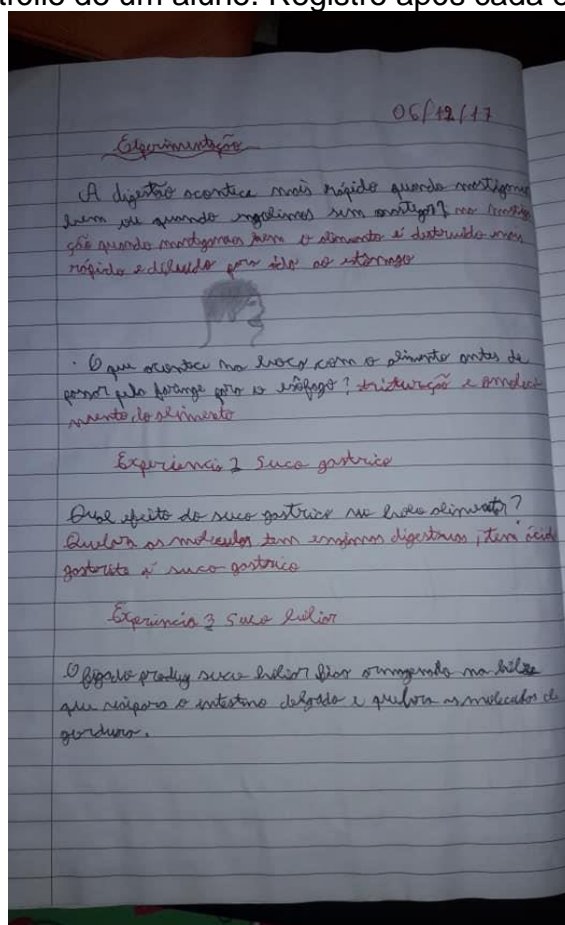 trólio de um aluno. Registro após cada e
06/12/17
Experimentação
A digestão acontece mais rápido quando mastigamos
bem ou quando engolimos sem mastigar? na
ção quando mastigamos bem o alimento é destruido mais
rápido e diluido para ido ao estômago
· O que acontece na boca com o alimento antes de
passar pela faringe para o esôfago? trituração e amoleci
mento do alimento
Experiencia 2 Suco gastrico
Qual efeito do suco gastrico no bolo alimentar?
Quebra as moleculas tem enzimas digestivas, tem ácid
gastrite é suco gastrico
Experincia 3 Suco biliar
O figado produz suco biliar fica na bile
que vai para o intestino delgado e quebra as moleculas de
gordura.